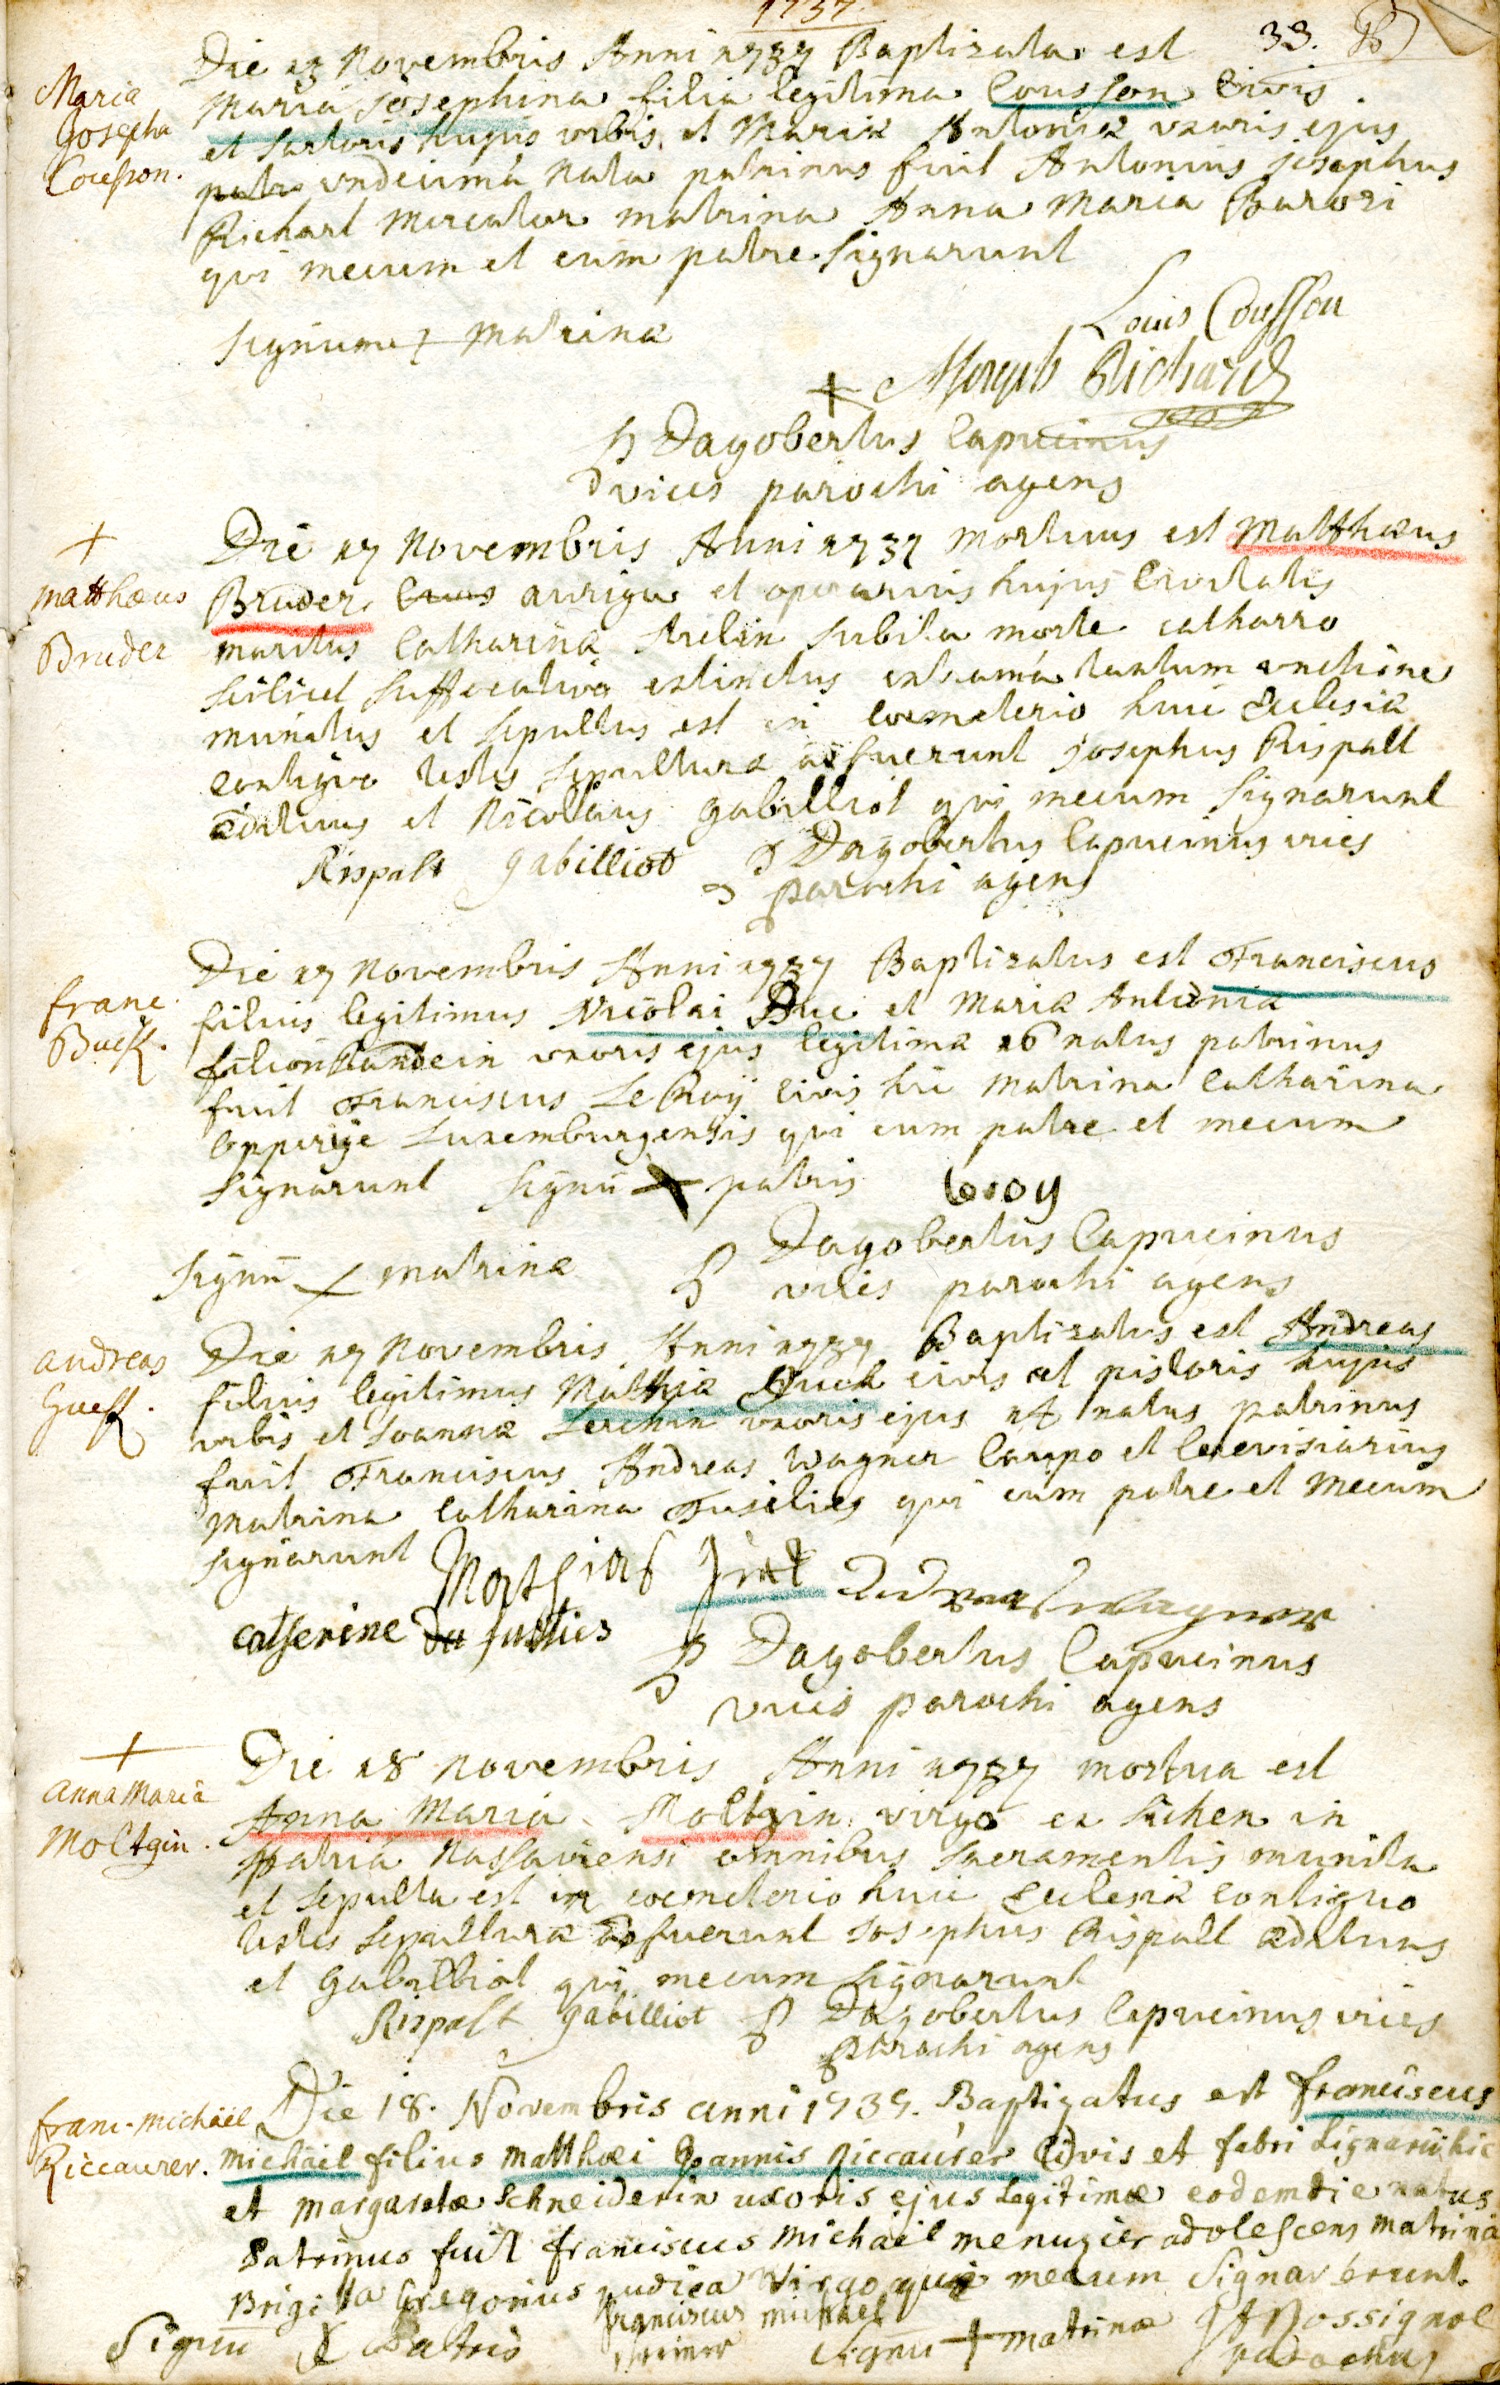 1737
33.
Maria
Josepha
Cousson.
Die 13 Novembris Anni 1737 Baptizata est
Maria Josephina filia legitima Cousson Civis
et sartoris hujus urbis et Mariæ Antoniæ uxoris ejus
undecima nata patrinus fuit Antonius josephus
Richart Mercator matrina Anna Maria
qui mecum et cum patre signarunt
signum + Matrinæ
Louis Cousson
Joseph Richard
P Dagobertus Capucinus
vices parochi agens
+
matthæus
Bruder
Die 17 Novembris Anni 1737 mortuus est Matthæus
Bruder auriga et operarius hujus Civitatis
maritus Catharinæ subita morte catharro
scilicet suffocativo extinctus extrema tantum unctione
munitus et sepultus est in coemeterio huic Ecclesiæ
contiguo testes sepulturæ adfuerunt josephus Rispalt
ædituus et Nicolaus gabilliot qui mecum signarunt
Rispalt gabilliot P Dagobertus Capucinus vices
parochi agens
franc.
Buck.
Die 17 Novembris Anni 1737 Baptizatus est Franciscus
filius legitimus Nicolai Buc et Mariæ Antoniæ
uxoris ejus legitimæ 16 natus patrinus
fuit Franciscus Le Roy Civis hic Matrina Catharina
Luxemburgensis qui cum patre et mecum
signarunt signū + patris leroy
signū + matrinæ
P Dagobertus Capucinus
vices parochi agens
andreas
Guck.
Die 17 Novembris Anni 1737 Baptizatus est Andreas
filius legitimus Mathiæ civis et pistoris hujus
urbis et Joannæ Lerchin uxoris ejus 17 natus patrinus
fuit Franciscus Andreas Wagner Caupo et Cerevisiarius
Matrina Catharina qui cum patre et Mecum
signarunt
Mathias andreas wagner
catherine
P Dagobertus Capucinus
vices parochi agens
+
anna Maria
Moltgin.
Die 18 Novembris Anni 1737 mortua est
Anna Maria Moltgin virgo ex sichen in
Patria Nassaviensi omnibus sacramentis munita
et sepulta est in coemeterio huic Ecclesiæ contiguo
testes sepulturæ adfuerunt Josephus Rispalt ædituus
et Gabilliot qui mecum signarunt
Rispalt gabilliot P Dagobertus Capucinus vices
parochi agens
franc-michäel
Riccaurer.
Die 18. Novembris anni 1737. Baptizatus est franciscus
michäel filius matthæi Joannis Riccaurer Civis et fabri Lignarii hic
et margaretæ Schneiderin uxoris ejus Legitimæ eodem die natus
Patrinus fuit franciscus michäel menuzier adolescens matrina
Brigitta Gregorius pudica Virgo qui mecum Signaverunt.
Signū + Patris franciscus michael
Signū + matrinæ Rossignol
parochus